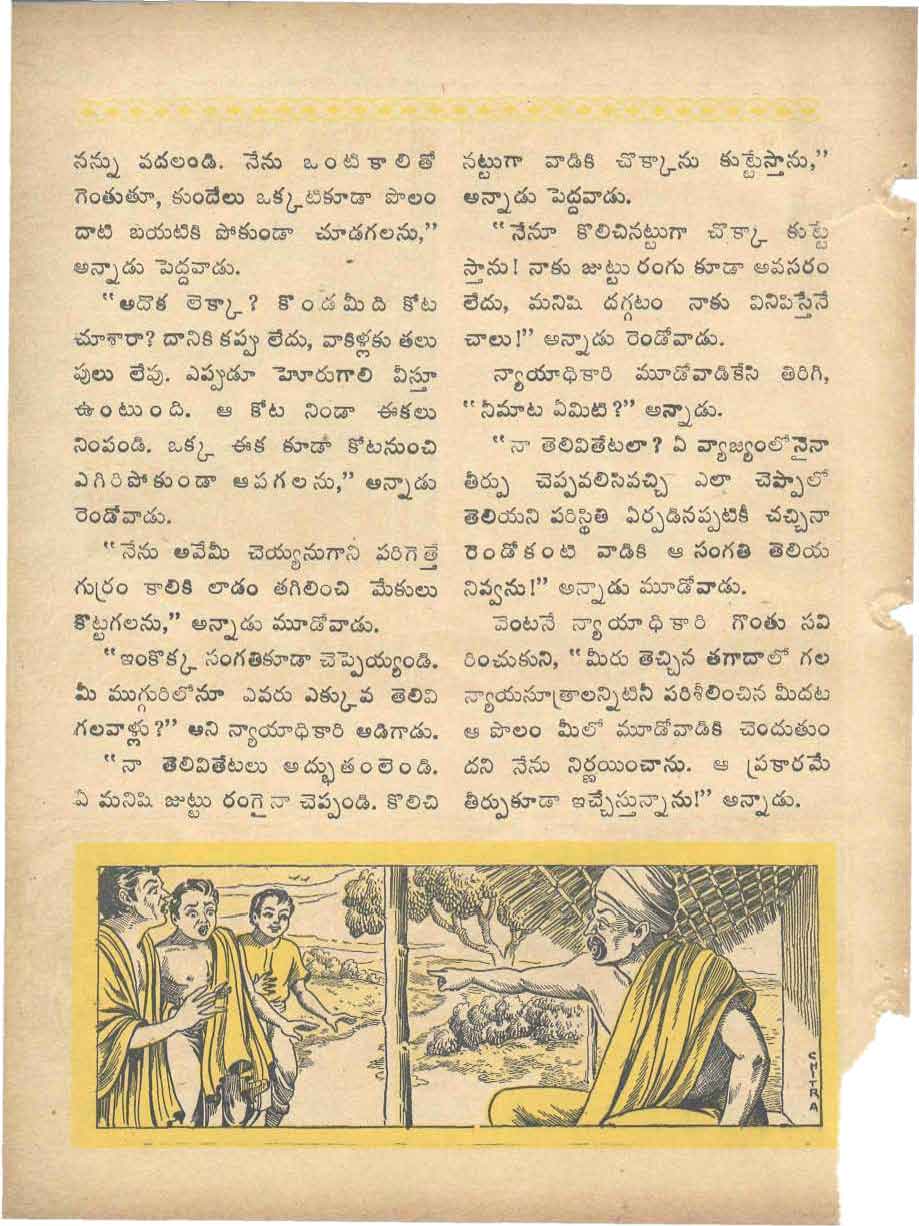 నన్ను వదలండి. నేను ఒంటికాలితో
గెంతుతూ, కుందేలు ఒక్కటికూడా పొలం
దాటి బయటికి పోకుండా చూడగలను,”
అన్నాడు పెద్దవాడు.
“అదొక లెక్కా? కొండమీది కోట
చూశారా? దానికి కప్పు లేదు, వాకిళ్లకు తలు
పులు లేవు. ఎప్పుడూ హోరుగాలి వీస్తూ
ఉంటుంది. ఆ కోట నిండా ఈకలు
నింపండి. ఒక్క ఈక కూడా కోటనుంచి
ఎగిరిపోకుండా ఆపగలను,” అన్నాడు
రెండోవాడు.
“నేను అవేమీ చెయ్యనుగాని పరిగెత్తే
గుర్రం కాలికి లాడం తగిలించి మేకులు
కొట్టగలను,” అన్నాడు మూడోవాడు.
“ఇంకొక్క సంగతికూడా చెప్పెయ్యండి.
మీ ముగ్గురిలోనూ ఎవరు ఎక్కువ తెలివి
గలవాళ్లు?” అని న్యాయాధికారి అడిగాడు.
“నా తెలివితేటలు అద్భుతంలెండి.
ఏ మనిషి జుట్టు రంగైనా చెప్పండి. కొలిచి
నట్టుగా వాడికి చొక్కాను కుట్టేస్తాను,”
అన్నాడు పెద్దవాడు.
“నేనూ కొలిచినట్టుగా చొక్కా కుట్టే
స్తాను! నాకు జుట్టు రంగు కూడా అవసరం
లేదు, మనిషి దగ్గటం నాకు వినిపిస్తేనే
చాలు!” అన్నాడు రెండోవాడు.
న్యాయాధికారి మూడోవాడికేసి తిరిగి,
“నీమాట ఏమిటి?” అన్నాడు.
“నా తెలివితేటలా? ఏ వ్యాజ్యంలోనైనా
తీర్పు చెప్పవలిసివచ్చి ఎలా చెప్పాలో
తెలియని పరిస్థితి ఏర్పడినప్పటికీ చచ్చినా
రెండోకంటి వాడికి ఆ సంగతి తెలియ
నివ్వను!” అన్నాడు మూడోవాడు.
వెంటనే న్యాయాధికారి గొంతు సవ
రించుకుని, “మీరు తెచ్చిన తగాదాలో గల
న్యాయసూత్రాలన్నిటినీ పరిశీలించిన మీదట
ఆ పొలం మీలో మూడోవాడికి చెందుతుం
దని నేను నిర్ణయించాను. ఆ ప్రకారమే
తీర్పుకూడా ఇచ్చేస్తున్నాను!” అన్నాడు.
CHITRA